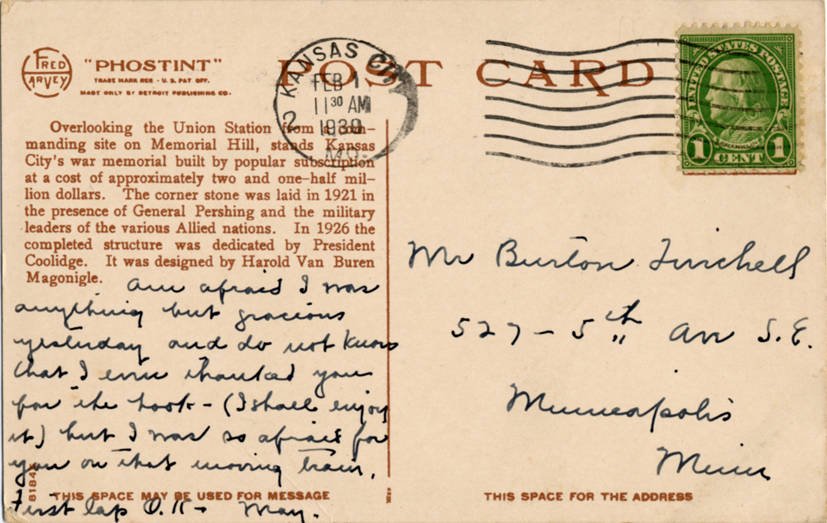 FRED HARVEY
"PHOSTINT"
TRADE MARK REG - U.S. PAT OFF.
MADE ONLY BY DETROIT PUBLISHING CO.
POST CARD
KANSAS CITY
2
FEB 1
11 30 AM
1930
MO.
UNITED STATES POSTAGE
FRANKLIN
1 CENT 1
Overlooking the Union Station from a com-
manding site on Memorial Hill, stands Kansas
City's war memorial built by popular subscription
at a cost of approximately two and one-half mil-
lion dollars. The corner stone was laid in 1921 in
the presence of General Pershing and the military
leaders of the various Allied nations. In 1926 the
completed structure was dedicated by President
Coolidge. It was designed by Harold Van Buren
Magonigle.
Am afraid I was
anything but gracious
yesterday and do not know
that I even thanked you
for the book - (I shall enjoy
it) but I was so afraid for
you on that moving train.
First lap O.K - May.
THIS SPACE MAY BE USED FOR MESSAGE
Mr Burton
527 - 5th Av S.E.
Minneapolis
Minn
THIS SPACE FOR THE ADDRESS